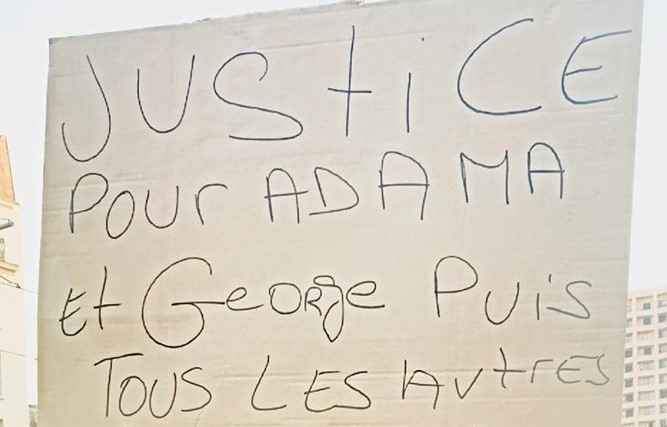 JUSTiCE
POUr ADAMA
Et GEORgE PUiS
TOUS LES AUtrES